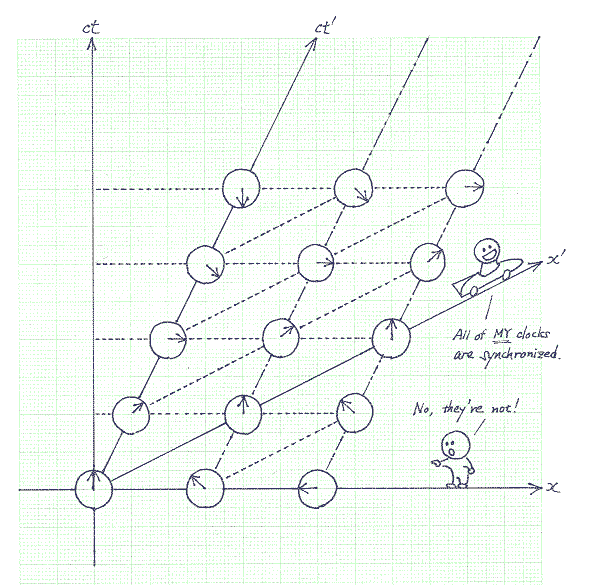 ct
ct′
x′
All of MY clocks
are synchronized.
No, they're not!
x